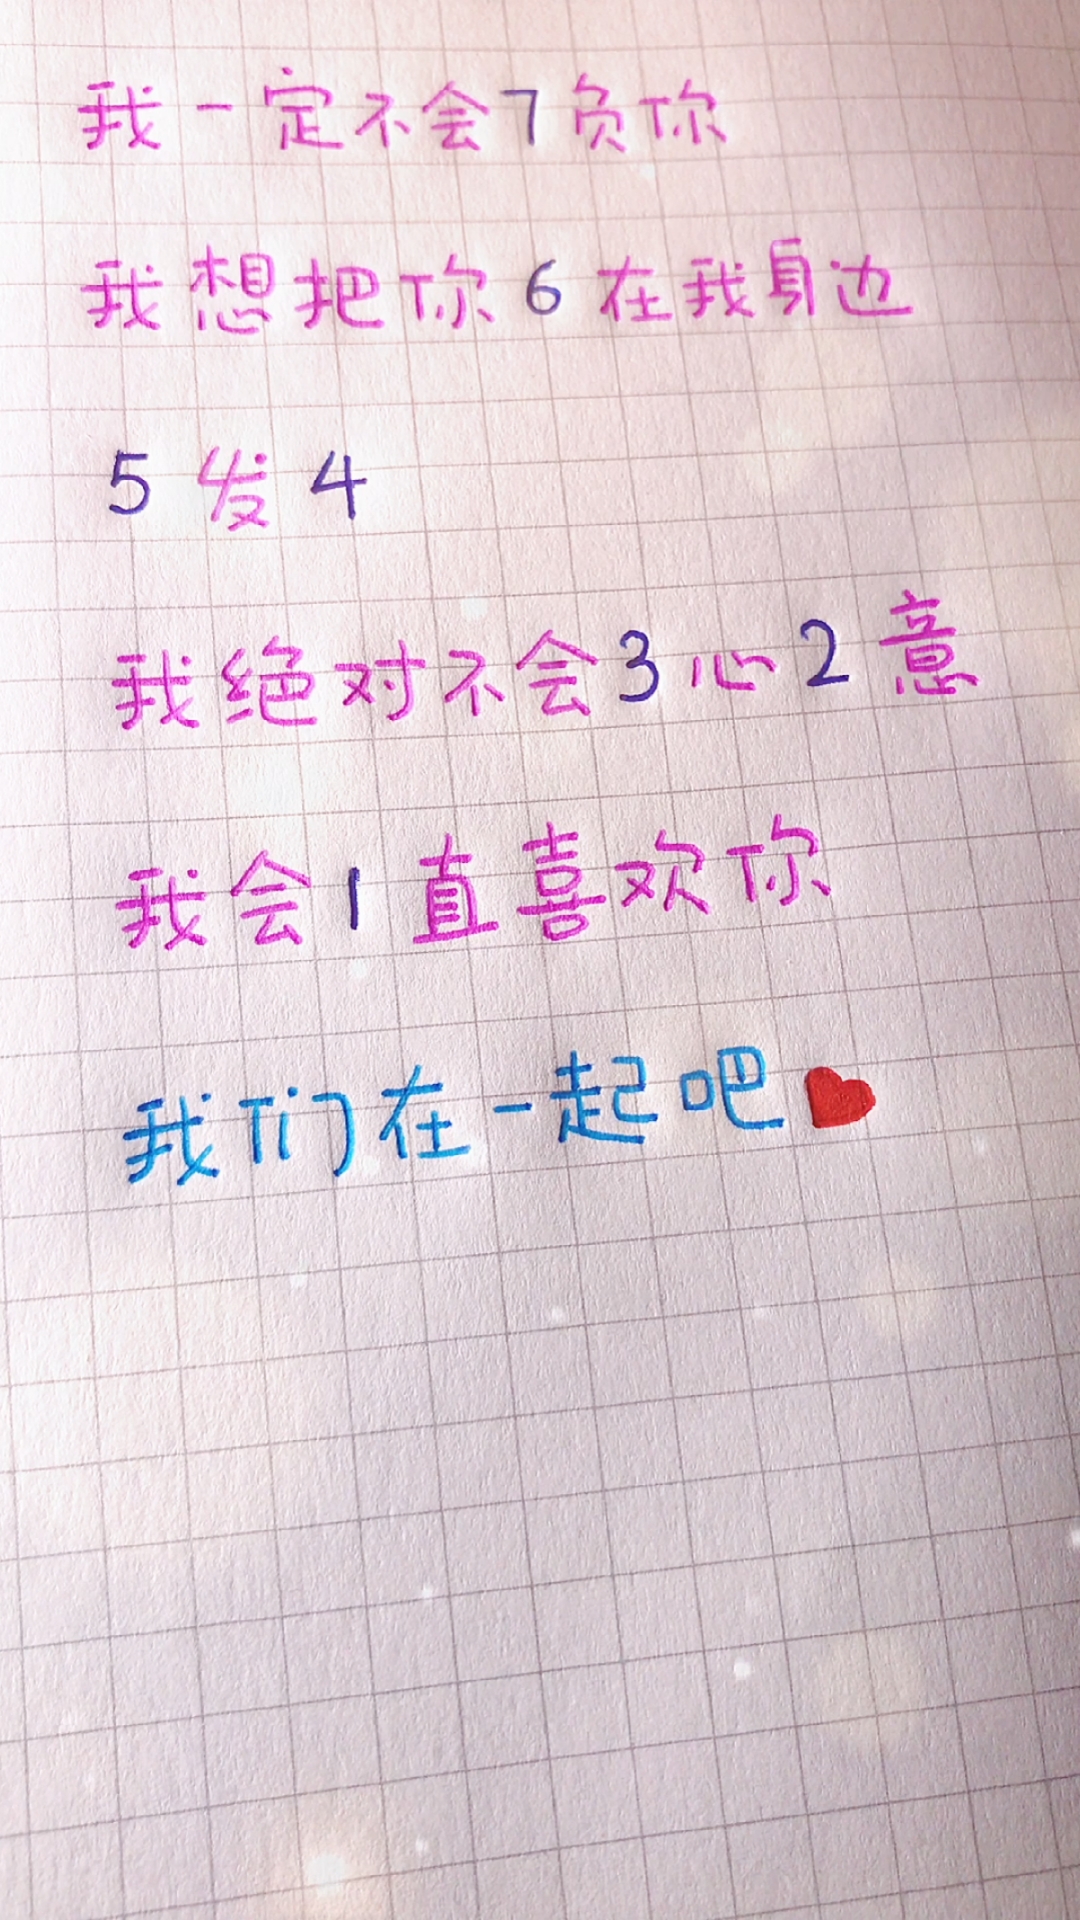 我一定不会7负你
我想把你6在我身边
5发4
我绝对不会3心2意
我会1直喜欢你
我们在一起吧